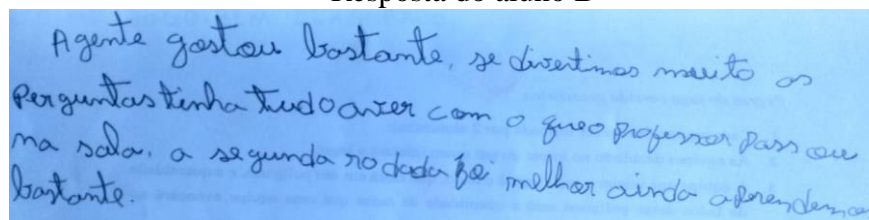 Resposta do aluno B
Agente gostou bastante, se divertimos muito as
Perguntas tinha tudo aver com o queo professor passou
na sala, a segunda rodada foi melhor ainda aprendemos
bastante.